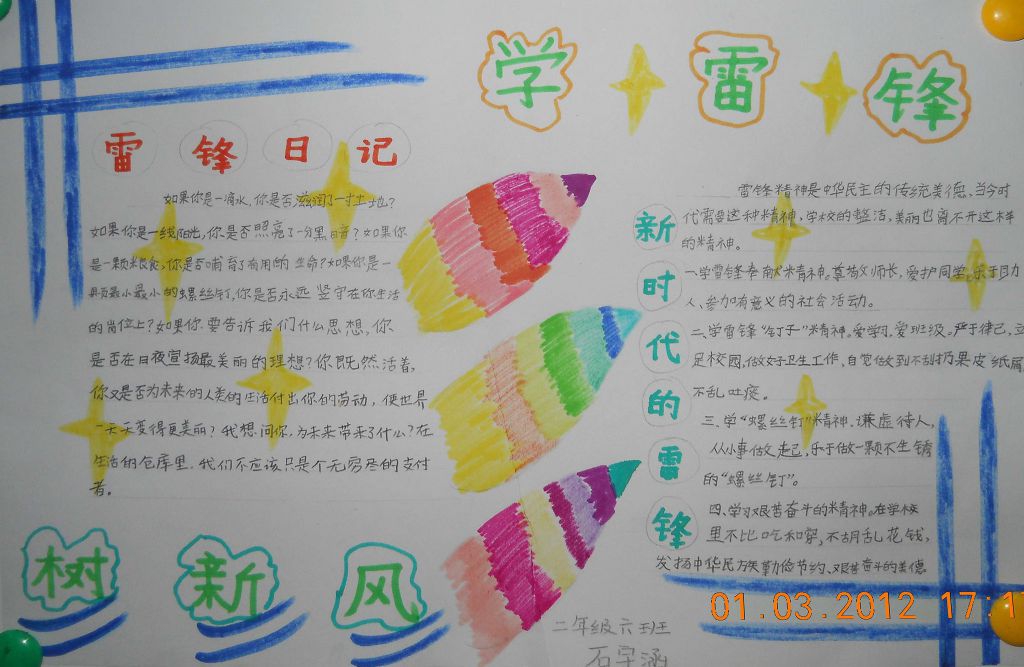 学雷锋
雷锋日记
如果你是一滴水,你是否滋润了一寸土地?
如果你是一线阳光,你是否照亮了一分黑暗?如果你
是一颗粮食,你是否哺育了有用的生命?如果你是一
颗最小最小的螺丝钉,你是否永远坚守在你生活
的岗位上?如果你要告诉我们什么思想,你
是否在日夜宣扬最美丽的理想?你既然活着,
你又是否为未来的人类的生活付出你的劳动,使世界
一天天变得更美丽?我想问你,为未来带来了什么?在
生活的仓库里,我们不应该只是个无穷尽的支付
者。
新时代的雷锋
雷锋精神是中华民主的传统美德、当今时
代需要这种精神,学校的整洁,美丽也离不开这样
的精神。
一、学雷锋奉献精神。尊敬师长,爱护同学,乐于助
人、参加有意义的社会活动。
二、学雷锋“钉子”精神。爱学习、爱班级。严于律己,立
足校园,做好卫生工作,自觉做到不乱扔果皮纸屑
不乱吐痰。
三、学“螺丝钉”精神,谦虚待人,
从小事做起,乐于做一颗不生锈
的“螺丝钉”。
四、学习艰苦奋斗的精神。在学校
里不比吃和穿,不胡乱花钱,
发扬中华民族勤俭节约、艰苦奋斗的美德
树新风
二年级六班
石宇涵
01.03.2012 17:1